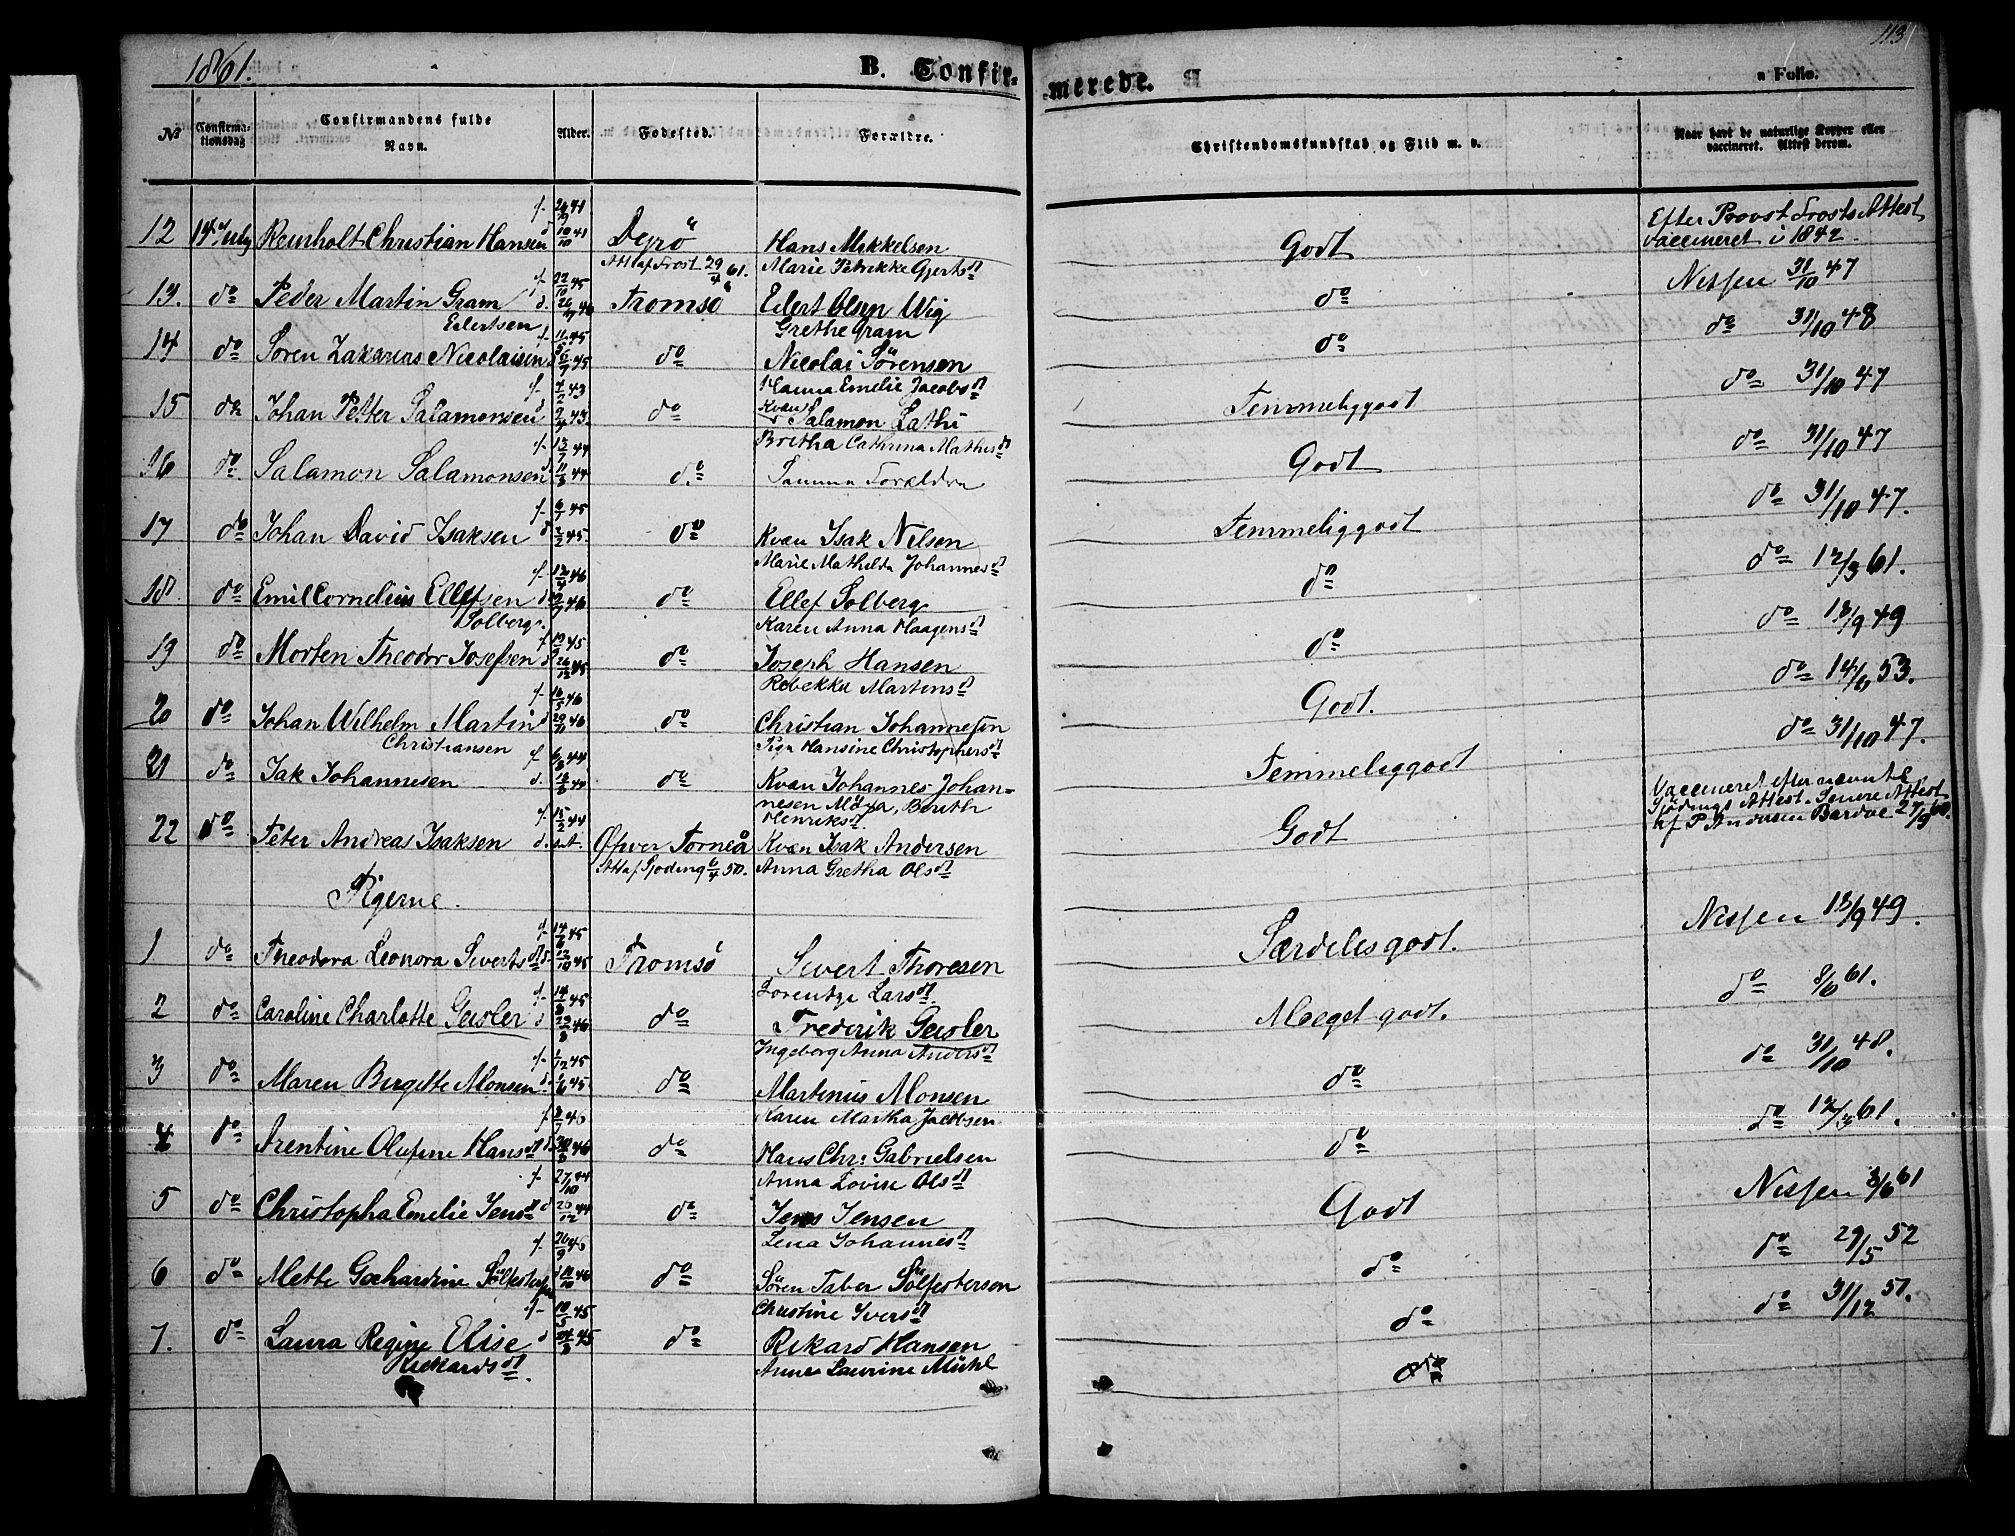 1861.
B. Confir-
merede.
n Folio.
113
No
Confirma-
tionsdag
Confirmandens fulde
Navn.
Alder.
Fødested.
Forældre.
Christendomskundskab og Flid m. v.
Naar havt de naturlige Kopper eller
vaccineret. Attest derom.
12 14 July Reinholt Christian Hansen Hans Mikkelsen Godt
Efter Provst Frosts Attest
vaccineret i 1842.
Att af Frost 29/4 61. Marie Petrikke Gjerts d
13. do Peder Martin Gram Tromsø Edert Olsen Wig do Nissen 31/10 47
Eilertsen Grethe Gram
14 do Søren Zakarias Nicolaisen do Nicolai Sørensen do do 31/10 48
Hanna Emelie Jacobs d
15 do Johan Petter Salamonsen do Kvæn Salamon Lathi Temmeliggodt do 31/10 47
Bretha Cathrina Mathis d
16 do Salamon Salamonsen do Samme Forældre Godt do 31/10 47
17 do Johan David Isaksen do Kvæn Isak Nilsen Temmeliggodt do 31/10 47.
Marie Mathilda Johannes d
18 do Emil Cornelius Ellefsen do Ellef Solberg do do 12/3 61.
Solberg. Karen Anna Haagens d
19 do Morten Theodor Josefsen do Joseph Hansen do do 18/9 49
Rebekka Martens d
20 do Johan Wilhelm Martin do Christian Johannesen Godt. do 14/6 53.
Christiansen Pige Hansine Christophers d
21 do Isak Johannesen do Kvæn Johannes Johan= Temmeliggodt do 31/10 47.
nesen Berith
Henriks d
22 do Peter Andreas Isaksen Øhver Torneå Kvæn Isak Andersen Godt
Vaccineret efter nævnte
Sjødings Attest. Senere Attest
af P Andersen Bardoe 27/9 60.
Att af Sjøding 6/4 50. Anna Gretha Ols d
Pigerne.
1 do Theodora Leonora Siverts d Tromsø Sivert Thoresen Særdeles godt. Nissen 18/9 49.
Lorentze Lars d
2 do Caroline Charlotte Geisler do Frederik Geisler Meget godt. do 8/6 61.
Ingeborg Anna Anders d
3 do Maren Birgitte Monsen do Martinus Monsen do do 31/10 48.
Karen Martha Jacobsen
4 do Arentine Olufine Hans d do Hans Chr: Gabrielsen do do 12/3 61.
Anna Lovise Ols d
5 do Christopha Emelie Jens d do Jens Jensen Godt Nissen 3/6 61
Lena Johannes d
6 do Mette do Søren Taber Sølfestersen do do 29/5 52
Christine Ivers d
7. do Laura Regine Elise do Rikard Hansen do do 31/12 51.
Rickards d. Anne Laurine Mühl
do